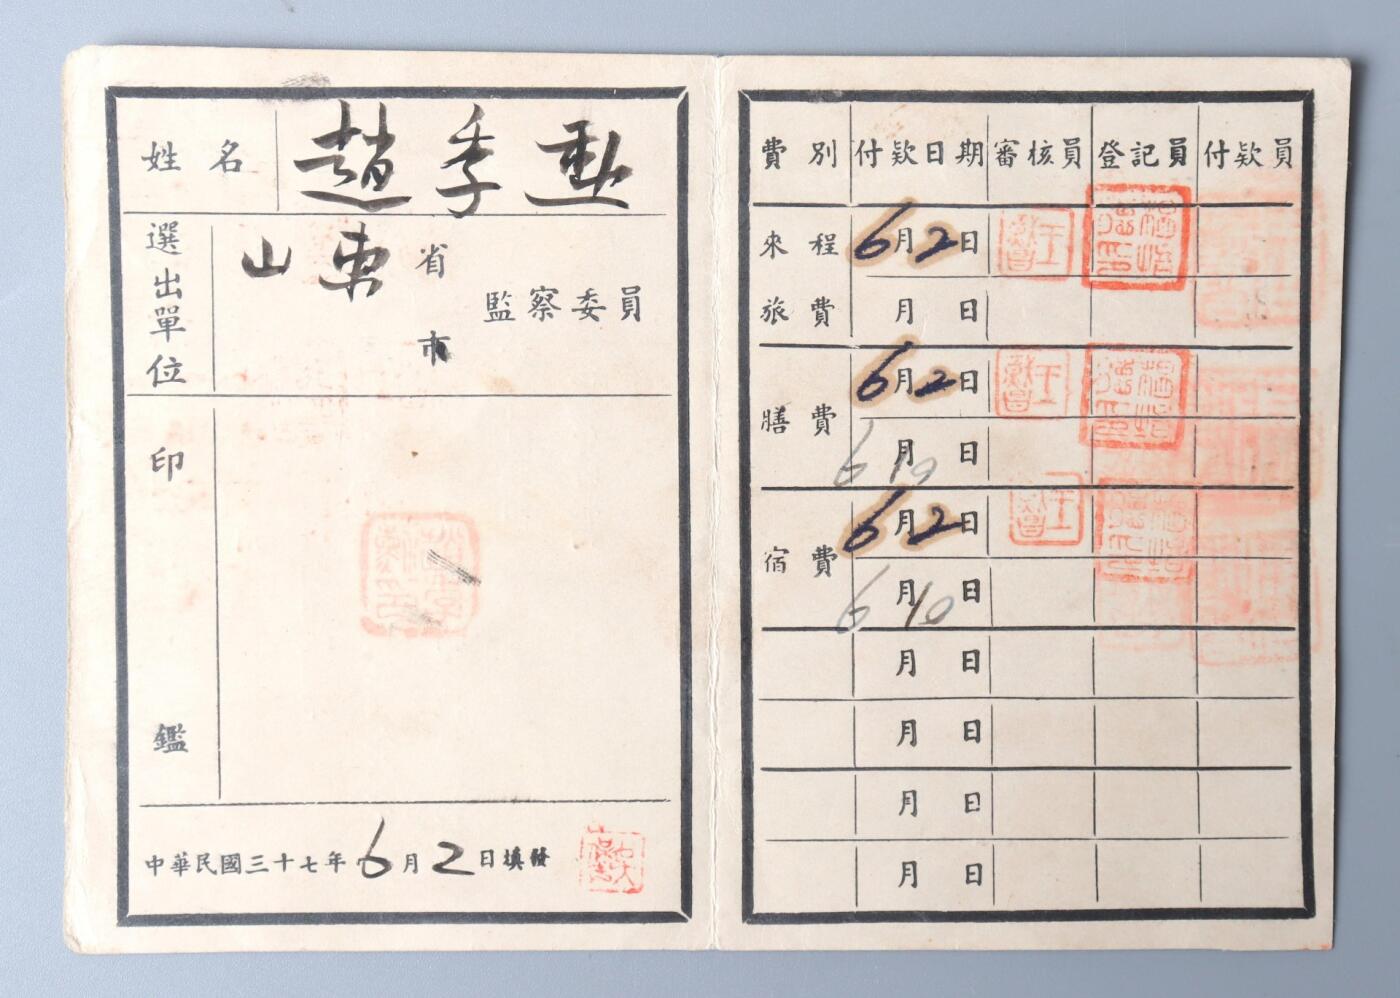 姓名 趙季勳
選出單位 山東省市 監察委員
印鑑
中華民國三十七年6月2日填發
費別 付款日期 審核員 登記員 付款員
來程旅費 6月2日
月 日
膳費 6月2日
6月10日
宿費 6月2日
6月10日
月 日
月 日
月 日
月 日